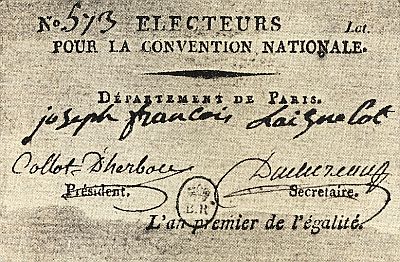 No 573 ELECTEURS Lat.
POUR LA CONVENTION NATIONALE.
DÉPARTEMENT DE PARIS.
joseph francois Laignelot
Collot D'herbois
Président. Secretaire.
B.R
L'an premier de l'égalité.